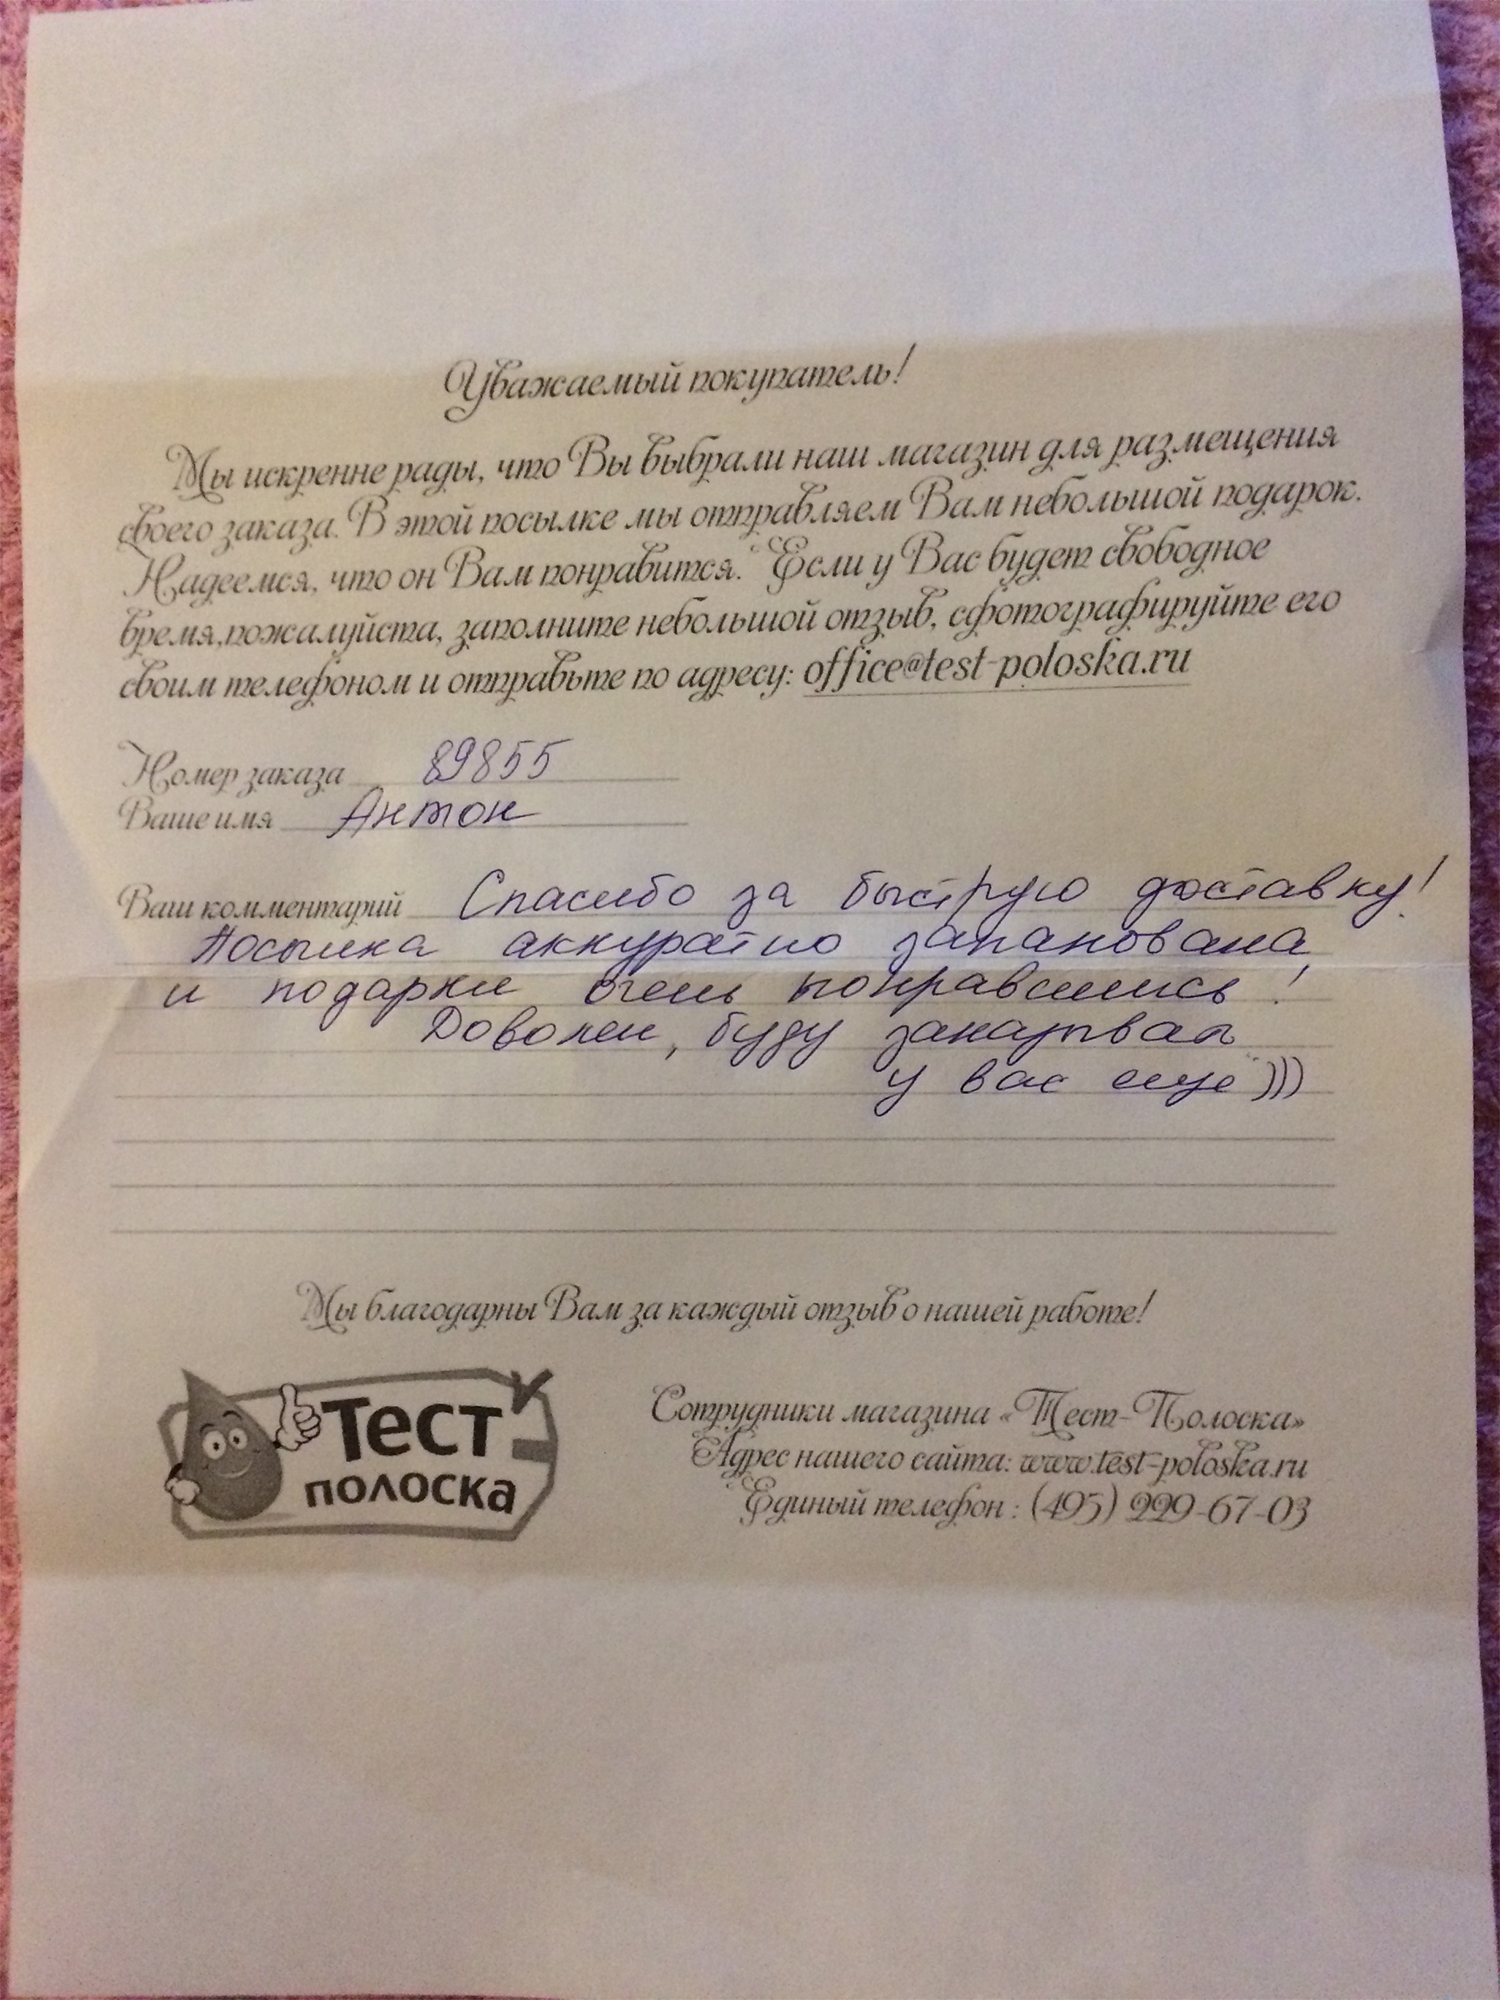 Уважаемый покупатель!
Мы искренне рады, что Вы выбрали наш магазин для размещения
своего заказа. В этой посылке мы отправляем Вам небольшой подарок.
Надеемся, что он Вам понравится. Если у Вас будет свободное
время,пожалуйста, заполните небольшой отзыв, сфотографируйте его
своим телефоном и отправьте по адресу: office@test-poloska.ru
Номер заказа 89855
Ваше имя Антон
Ваш комментарий Спасибо за быструю доставку!
Посылка аккуратно запакована
и подарки очень понравились!
Доволен, буду заказывать
у вас еще)))
Мы благодарны Вам за каждый отзыв о нашей работе!
Тест
полоска
Сотрудники магазина «Тест-Полоска»
Адрес нашего сайта: www.test-poloska.ru
Единый телефон : (495) 229-67-03